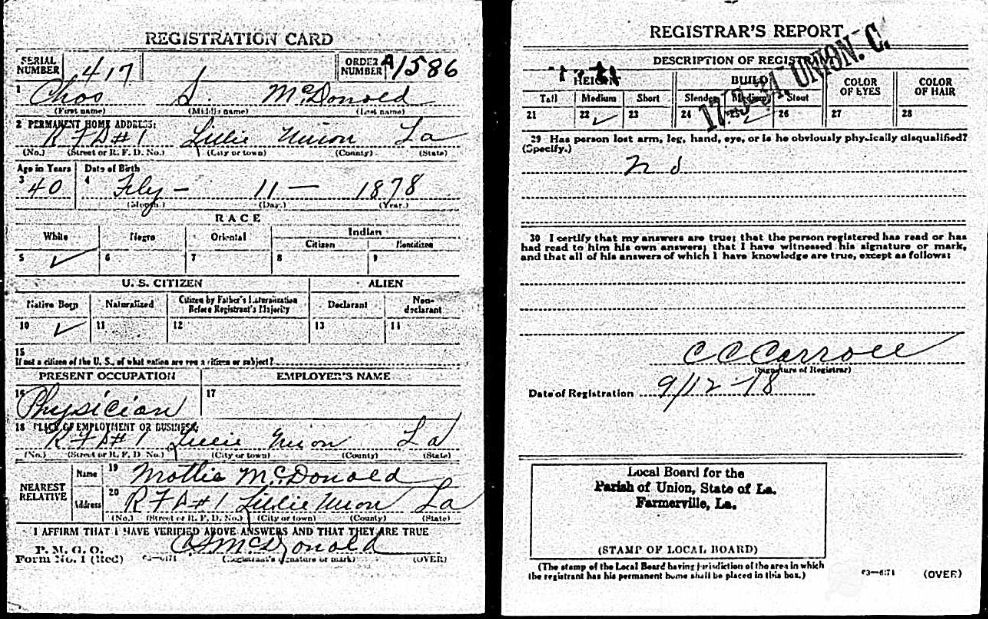 REGISTRATION CARD
SERIAL NUMBER 417 ORDER NUMBER A1586
1 Chas S McDonald
(First name) (Middle name) (Last name)
2 PERMANENT HOME ADDRESS:
R F D #1 Lillie Union La
(No.) (Street or R. F. D. No.) (City or town) (County) (State)
Age in Years Date of Birth
3 40 4 11 — 1878
(Month.) (Day.) (Year.)
RACE
White Negro Oriental Indian
Citizen Noncitizen
5 ✓ 6 7 8 9
U. S. CITIZEN ALIEN
Native Born Naturalized Citizen by Father's Naturalization Before Registrant's Majority Declarant Non-declarant
10 ✓ 11 12 13 14
15
If not a citizen of the U. S., of what nation are you a citizen or subject?
PRESENT OCCUPATION EMPLOYER'S NAME
16 Physician 17
18 PLACE OF EMPLOYMENT OR BUSINESS:
R F D #1 Lillie Union La
(No.) (Street or R. F. D. No.) (City or town) (County) (State)
NEAREST RELATIVE Name 19 Mollie McDonald
Address 20 R F D #1 Lillie Union La
(No.) (Street or R. F. D. No.) (City or town) (County) (State)
I AFFIRM THAT I HAVE VERIFIED ABOVE ANSWERS AND THAT THEY ARE TRUE
P. M. G. O.
Form No. 1 (Red) C S McDonald
(Registrant's signature or mark) (OVER)
REGISTRAR'S REPORT
17-5-34. UNION. C.
DESCRIPTION OF REGISTRANT
HEIGHT BUILD COLOR OF EYES COLOR OF HAIR
Tall Medium Short Slender Medium Stout
21 22 ✓ 23 24 25 ✓ 26 27 28
29 Has person lost arm, leg, hand, eye, or is he obviously physically disqualified?
(Specify.)
no
30 I certify that my answers are true; that the person registered has read or has
had read to him his own answers; that I have witnessed his signature or mark,
and that all of his answers of which I have knowledge are true, except as follows:
C C Carroll
(Signature of Registrar)
Date of Registration 9/12-18
Local Board for the
Parish of Union, State of La.
Farmerville, La.
(STAMP OF LOCAL BOARD)
(The stamp of the Local Board having jurisdiction of the area in which
the registrant has his permanent home shall be placed in this box.)
03—6171 (OVER)